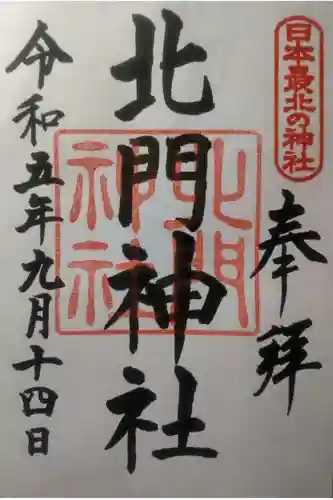 日本最北の神社
奉拜
北門神社
北門
神社
令和五年九月十四日